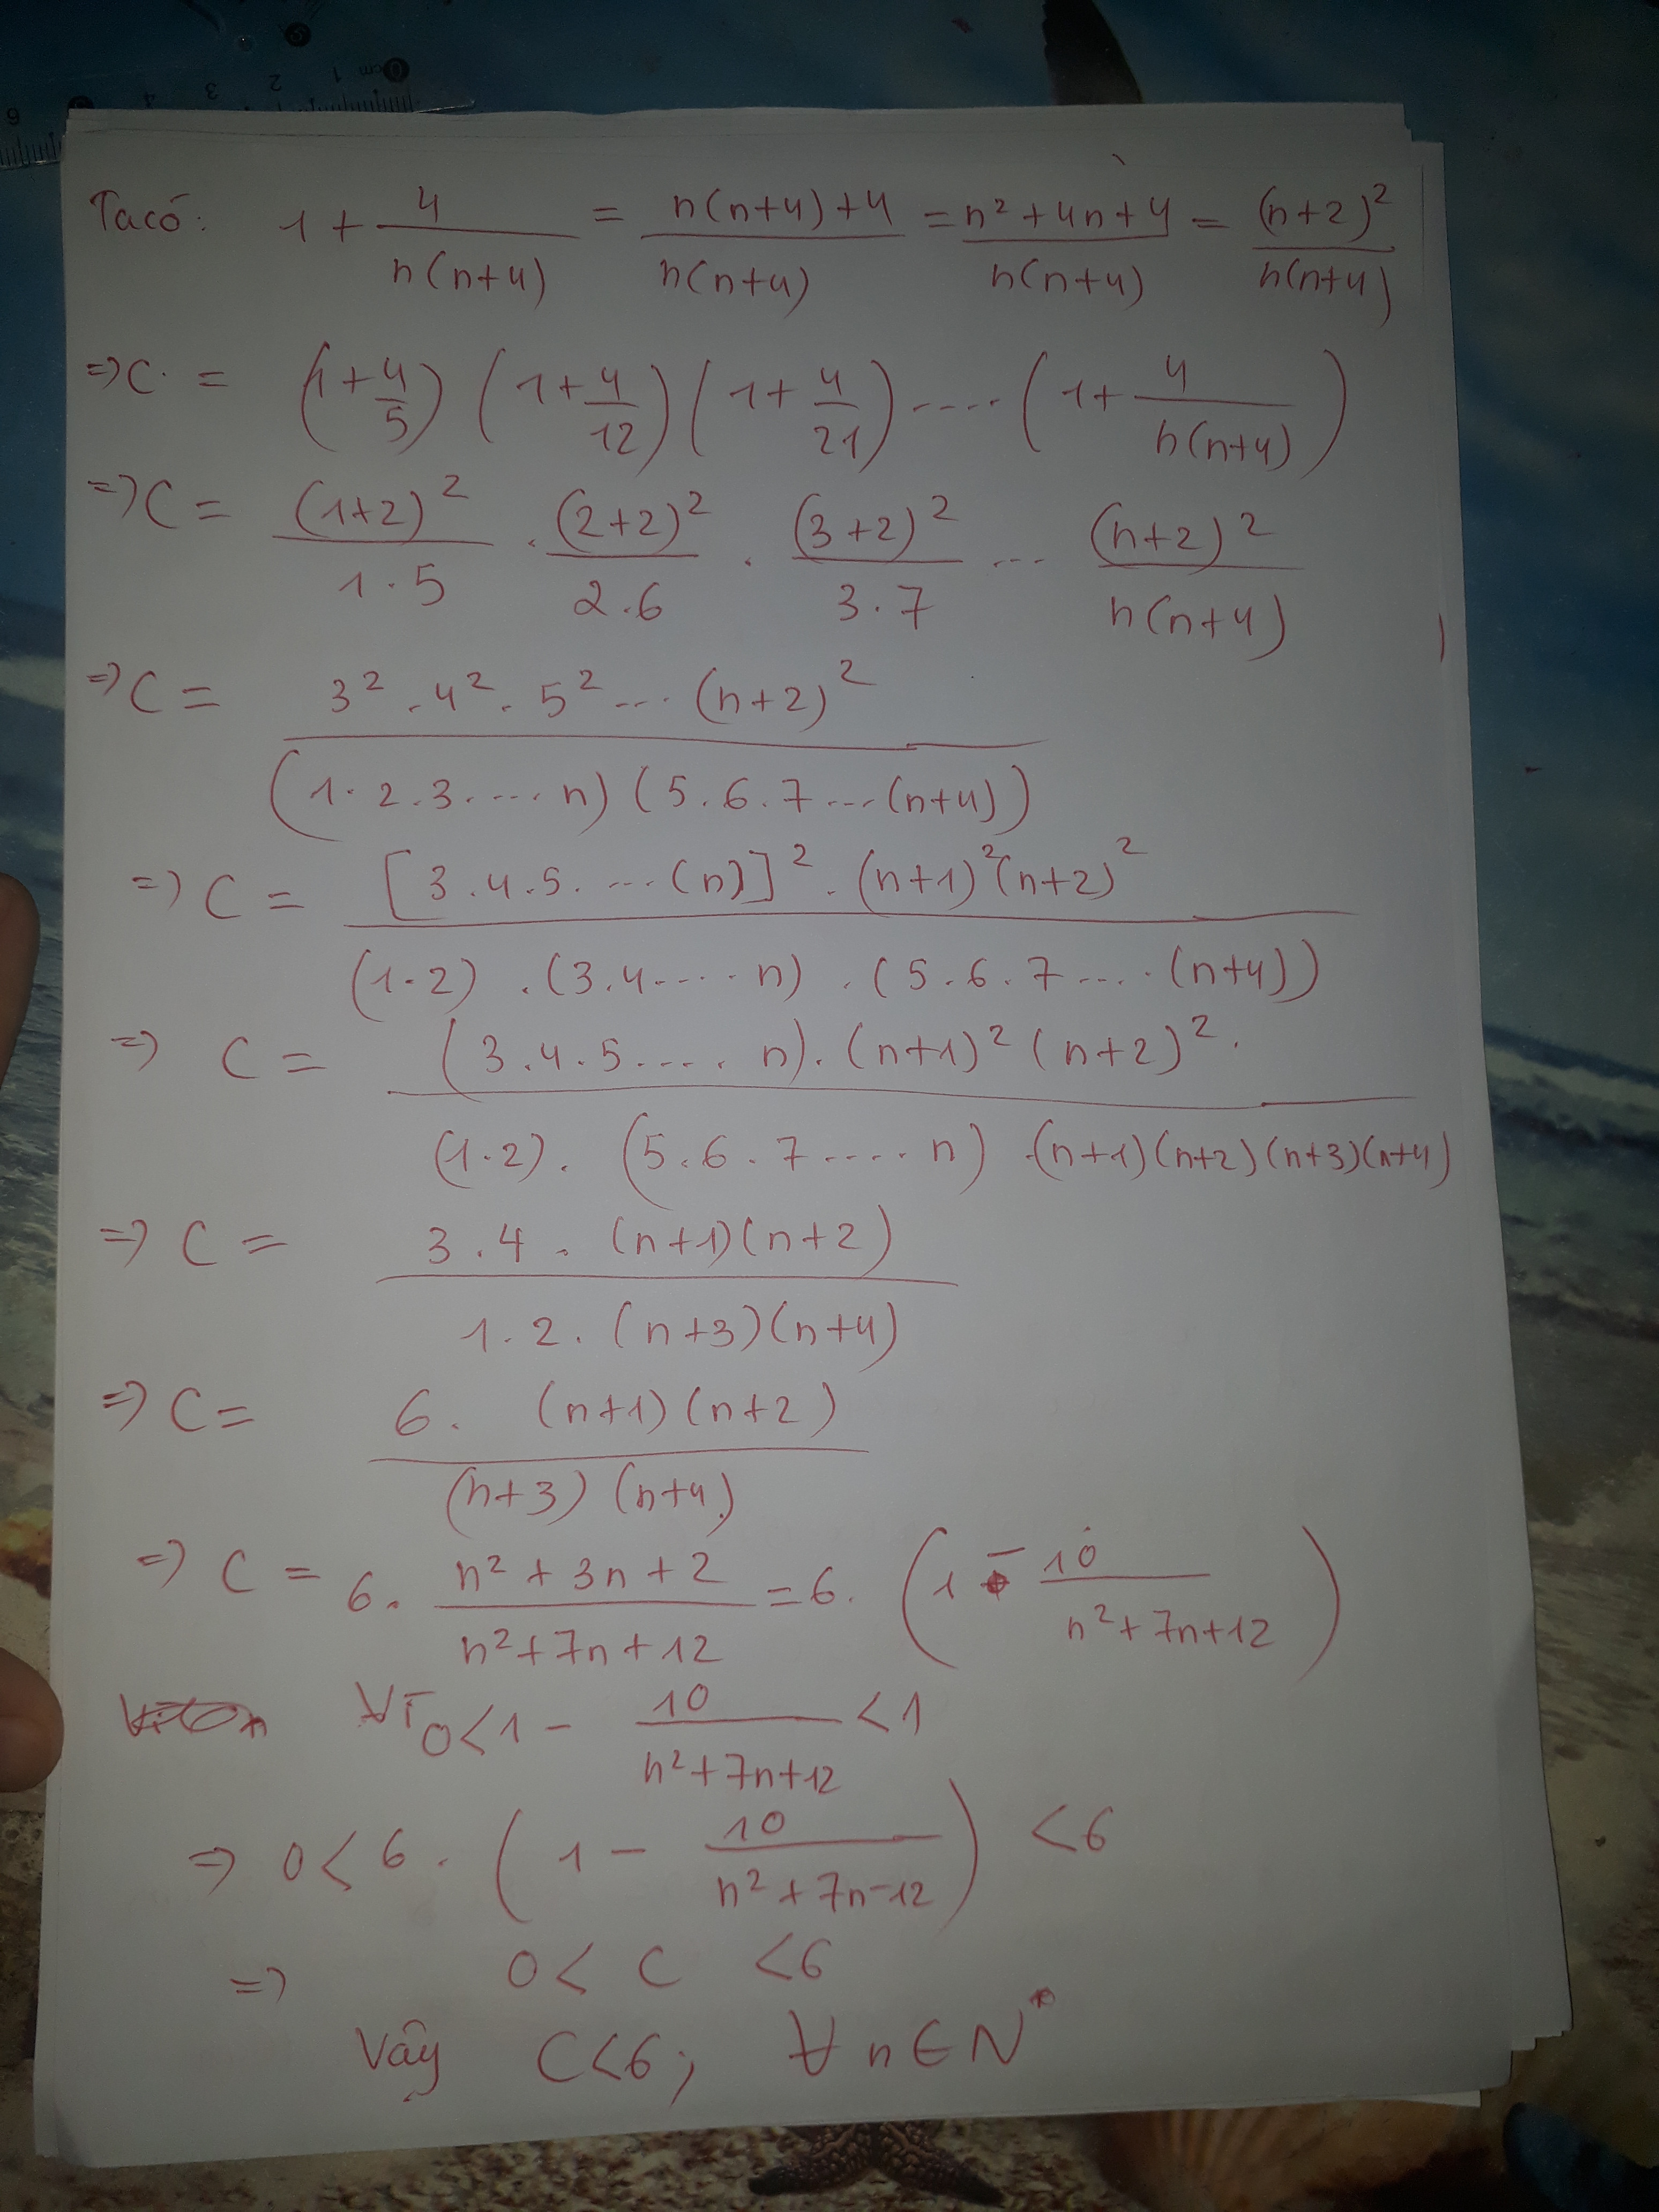 0cm 1 2 3 4 6
Ta có: 1 + 4/(n(n+4)) = (n(n+4)+4)/(n(n+4)) = (n²+4n+4)/(n(n+4)) = (n+2)²/(n(n+4))
=> C = (1+4/5)(1+4/12)(1+4/21)....(1+4/(n(n+4)))
=> C = (1+2)²/(1.5) . (2+2)²/(2.6) . (3+2)²/(3.7) ... (n+2)²/(n(n+4))
=> C = (3².4².5²...(n+2)²)/((1.2.3....n)(5.6.7...(n+4)))
=> C = ([3.4.5....(n)]².(n+1)²(n+2)²)/((1.2).(3.4....n).(5.6.7....(n+4)))
=> C = ((3.4.5.....n).(n+1)²(n+2)².)/((1.2).(5.6.7.....n).(n+1)(n+2)(n+3)(n+4))
=> C = (3.4.(n+1)(n+2))/(1.2.(n+3)(n+4))
=> C = (6.(n+1)(n+2))/((n+3)(n+4))
=> C = 6.(n²+3n+2)/(n²+7n+12) = 6.(1 - 10/(n²+7n+12))
0<1 - 10/(n²+7n+12) <1
=> 0<6.(1 - 10/(n²+7n-12)) <6
=> 0< C <6
Vậy C<6; ∀n∈N*